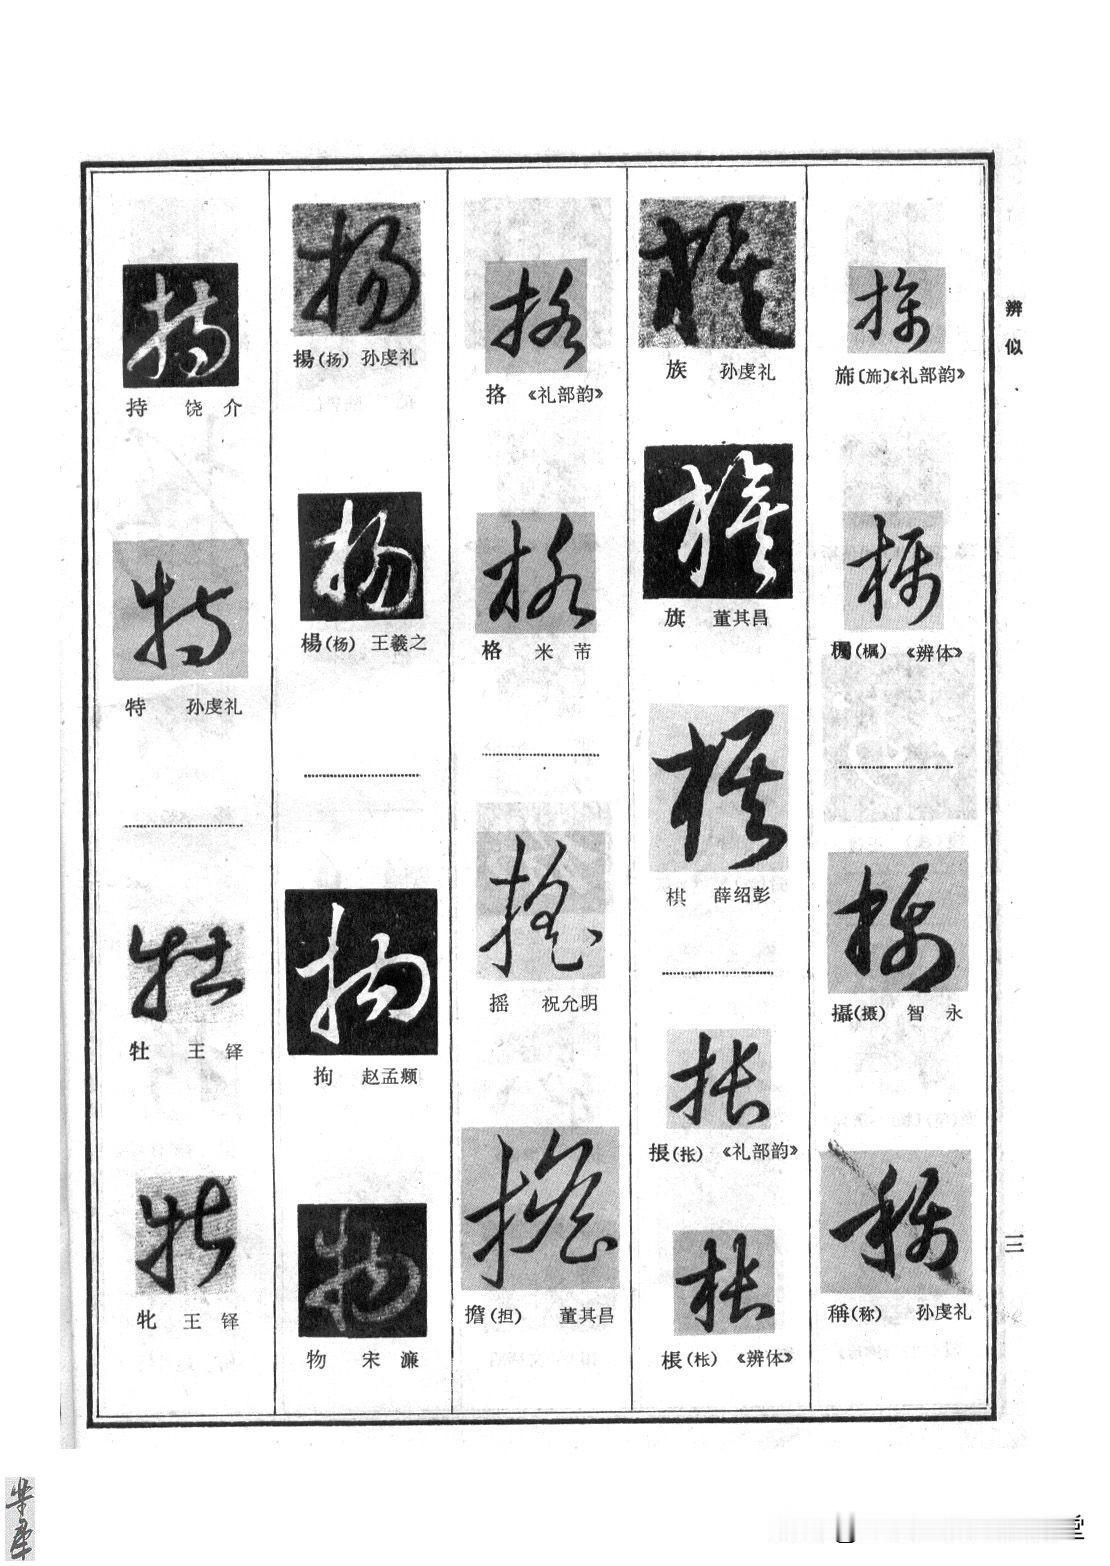 辨似
旆〔斾〕《礼部韵》
(楓)《辨体》
攝(摄) 智永
稱(称) 孙虔礼
族 孙虔礼
旗 董其昌
棋 薛绍彭
掁(枨)《礼部韵》
棖(枨)《辨体》
挌 《礼部韵》
格 米芾
摇 祝允明
擔(担) 董其昌
揚(扬) 孙虔礼
楊(杨) 王羲之
拘 赵孟頫
物 宋濂
持 饶介
特 孙虔礼
牡 王铎
牝 王铎
三